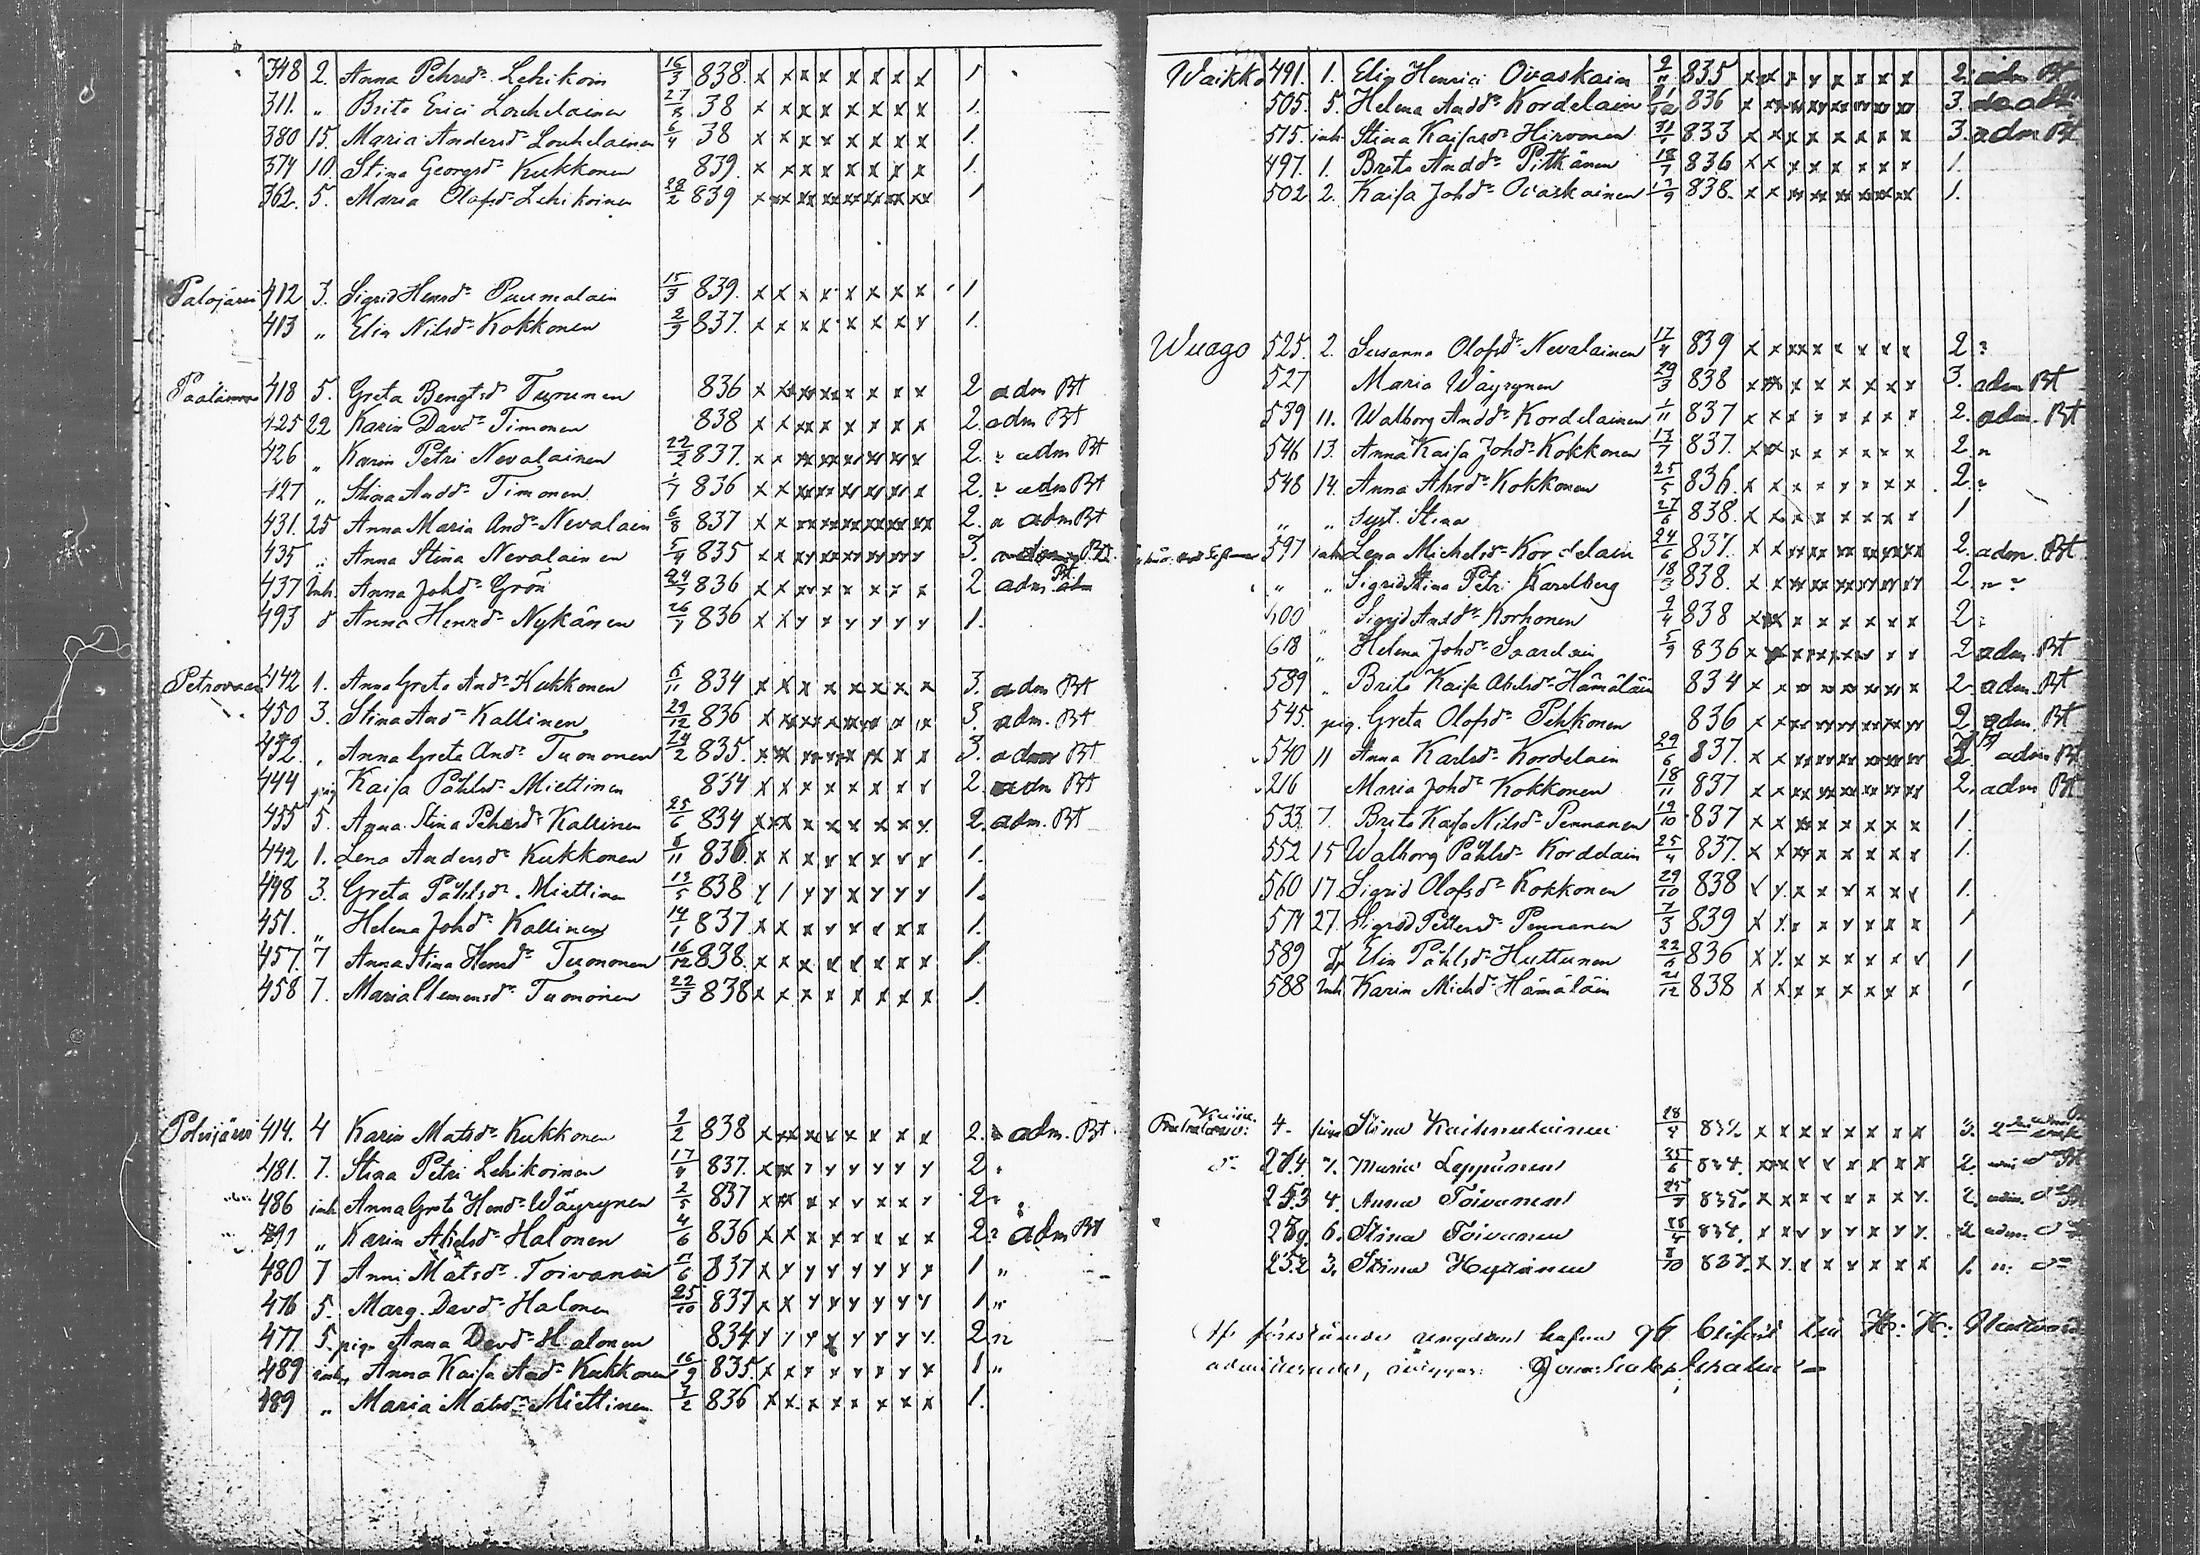 348 2. Anna Pehrsdr Lehikoin 16/3 838. x x x x x x x x 1.
311. " Brita Erici Louhelainen 27/8 38 x x x x x x x x 1.
380 15. Maria Andersdr Louhelainen 6/4 38 x x x x x x x x 1.
374 10. Stina Georgsdr Kukkonen 839. x x x x x x x x 1.
362. 5. Maria Olofsdr Lehikoinen 28/2 839 x xx xx xx xx xx xx xx 1
Palojärvi 412 3. Sigrid Henrdr Puumalain 15/3 839. x x x x x x x x 1
413 " Elin Nilsdr Kokkonen 2/9 837. x x x x x x x x 1.
418 5. Greta Bengtsdr Turunen 836 x xx xx xx x x x x 2 adm Bt
425 22 Karin Davdr Timonen 838 x x xx x x x x x 2. adm Bt
426 " Karin Petri Nevalainen 22/2 837. x x xx xx xx xx xx x 2. " adm Bt
427 " Stina Anddr Timonen 1/7 836 x x xx xx xx xx xx x 2. " adm Bt
431. 25 Anna Maria Andr Nevalain 6/8 837 x x xx xx xx xx xx xx 2. " adm Bt
435 " Anna Stina Nevalainen 5/9 835 x x xx xx xx xx xx x 3.
437 Inh. Anna Johdr Grön 24/7 836 x x xx xx x x x x 2 adm Bt
493 d Anna Henrdr Nykänen 26/7 836 x x y x y y y y 1.
442 1. Anna Greta Andr Kukkonen 5/11 834 x x x x x x x x 3. adm Bt
450 3. Stina Andr Kallinen 29/12 836 x xx xx xx xx x x x 3. adm. Bt
452. , Anna Greta Andr Tuononen 24/2 835. xx xx x xx xx x x x 3. adm Bt
444 pig Kaisa Påhlsdr Miettinen 834 x x x x x x x x 2. adm Bt
455 5. Anna Stina Pehrsdr Kallinen 25/6 834 xx x x x x x x x. 2. adm. Bt
442 1. Lena Andersdr Kukkonen 8/11 836. x x x x x x x x 1.
448 3. Greta Påhlsdr Miettinen 13/5 838 y / y y x y y y 1.
451. " Helena Johdr Kallinen 14/1 837. x x x x x x x x 1.
457. 7 Anna Stina Henrdr Tuononen 16/12 838. x x x x x x x x 1.
458 7. Maria Clemensdr Tuononen 22/3 838 x x x x x x x x 1.
Polvijärvi 414. 4 Karin Matsdr Kukkonen 2/2 838 x xx xx x x x x x 2. " adm. Bt
481. 7. Stina Petri Lehikoinen 17/4 837. x xx y y y y y y 2 "
486 inh Anna Greta Henrdr Wäyrynen 2/5 837 x xx x x x x x x 2 "
491 " Karin Abelsdr Halonen 4/6 836 x x x x x x x x 2 " adm Bt
480 7 Anni Matsdr Toivanen 17/6 837 x y y y y y y y 1 "
476 5. Marg. Davdr Halonen 25/10 837 x x y y y y y y 1 "
477. 5. pig. Anna Davdr Halonen 834 y y y x y y y y. 2 "
489 inh. Anna Kaisa Andr Kukkonen 16/9 835. x x y x x x x x 1 "
489 " Maria Matsdr Miettinen 3/2 836 x x x x x x x x 1.
Waikko 491. 1. Elin Henrici Ovaskain 2/11 835 x x x y x x x x 2. adm Bt
505. 5. Helena Anddr Kordelain 836 x xx xx xx xx xx xx 3.
515. inh Stina Kaisasdr Hirvonen 31/7 833 x x x x x x x x 3. adm Bt
497. 1. Brita Anddr Pitkänen 18/7 836 x x x x x x x x 1.
502 2. Kaisa Johdr Ovaskainen 838. x x xx xx xx xx xx xx 1.
Wuago 525. 2. Susanna Olofsdr Nevalainen 17/4 839 x x xx x x x x x 2 "
527 Maria Wäyrynen 29/3 838 x xx x x x x x x 3. adm Bt
539 11. Walborg Anddr Kordelainen 1/11 837 x x x x x x x x 2. adm. Bt
546 13. Anna Kaisa Johdr Kokkonen 17/7 837. x xx x x x x x x 2 "
548 14. Anna Ahrdr Kokkonen 25/5 836. x x x x x x x x 2. "
" " Syst. Stina 27/6 838. x x x x x x x x 1
597 inh Lena Michelsdr Kordelain 24/6 837. x x xx xx xx xx xx xx 2. adm. Bt
" " Sigrid Stina Petri Karlberg 18/3 838. x x xx xx xx xx xx xx 2. " "
600 " Sigrid Andsdr Korhonen 9/4 838 x xx x x x x x x 2 "
618 " Helena Johdr Saarelain 5/9 836 x x x x x x x x 2 adm. Bt
589 " Brita Kaisa Abelsdr Hämäläin 834 x x xx x xx xx xx x 2. adm. Bt
545. pig. Greta Olofsdr Pehkonen 836 x x xx xx xx xx xx x 2. adm. Bt
540 11 Anna Karlsdr Kordelain 29/6 837. x x xx xx xx xx xx xx adm Bt
216 Maria Johdr Kokkonen 18/11 837 x x xx xx xx xx xx xx 2. adm. Bt
533. 7. Brita Kaisa Nilsdr Pennanen 19/10 837 x x xx x x x x x 1.
552 15 Walborg Påhlsdr Kordelain 25/4 837. x x xx x x x x x 1.
560 17 Sigrid Olofsdr Kokkonen 29/10 838 x y. x x x x x x 1.
574 27. Sigrid Pettersdr Pennanen 7/3 839 x x. x x x x x x 1
589 Elin Påhlsdr Huttunen 22/6 836 x x. x x x x x x 1
588 Inh Karin Michdr Hämäläin 21/12 838 x x x x x x x x 1
4. Stina 28/4 x x x x x x x x 3.
7. Maria Leppänen 25/6 834. x x x x x x x x 2.
253 4. Anna Toivanen 835. x x x x x x x x. 2.
6. Stina Toivanen 834. x x x x x x x x. 2 adm.
252 3. Stina 8/10 837. x x x x x x x x 1. "
Af förestående ungdom hafva 96 blifvit